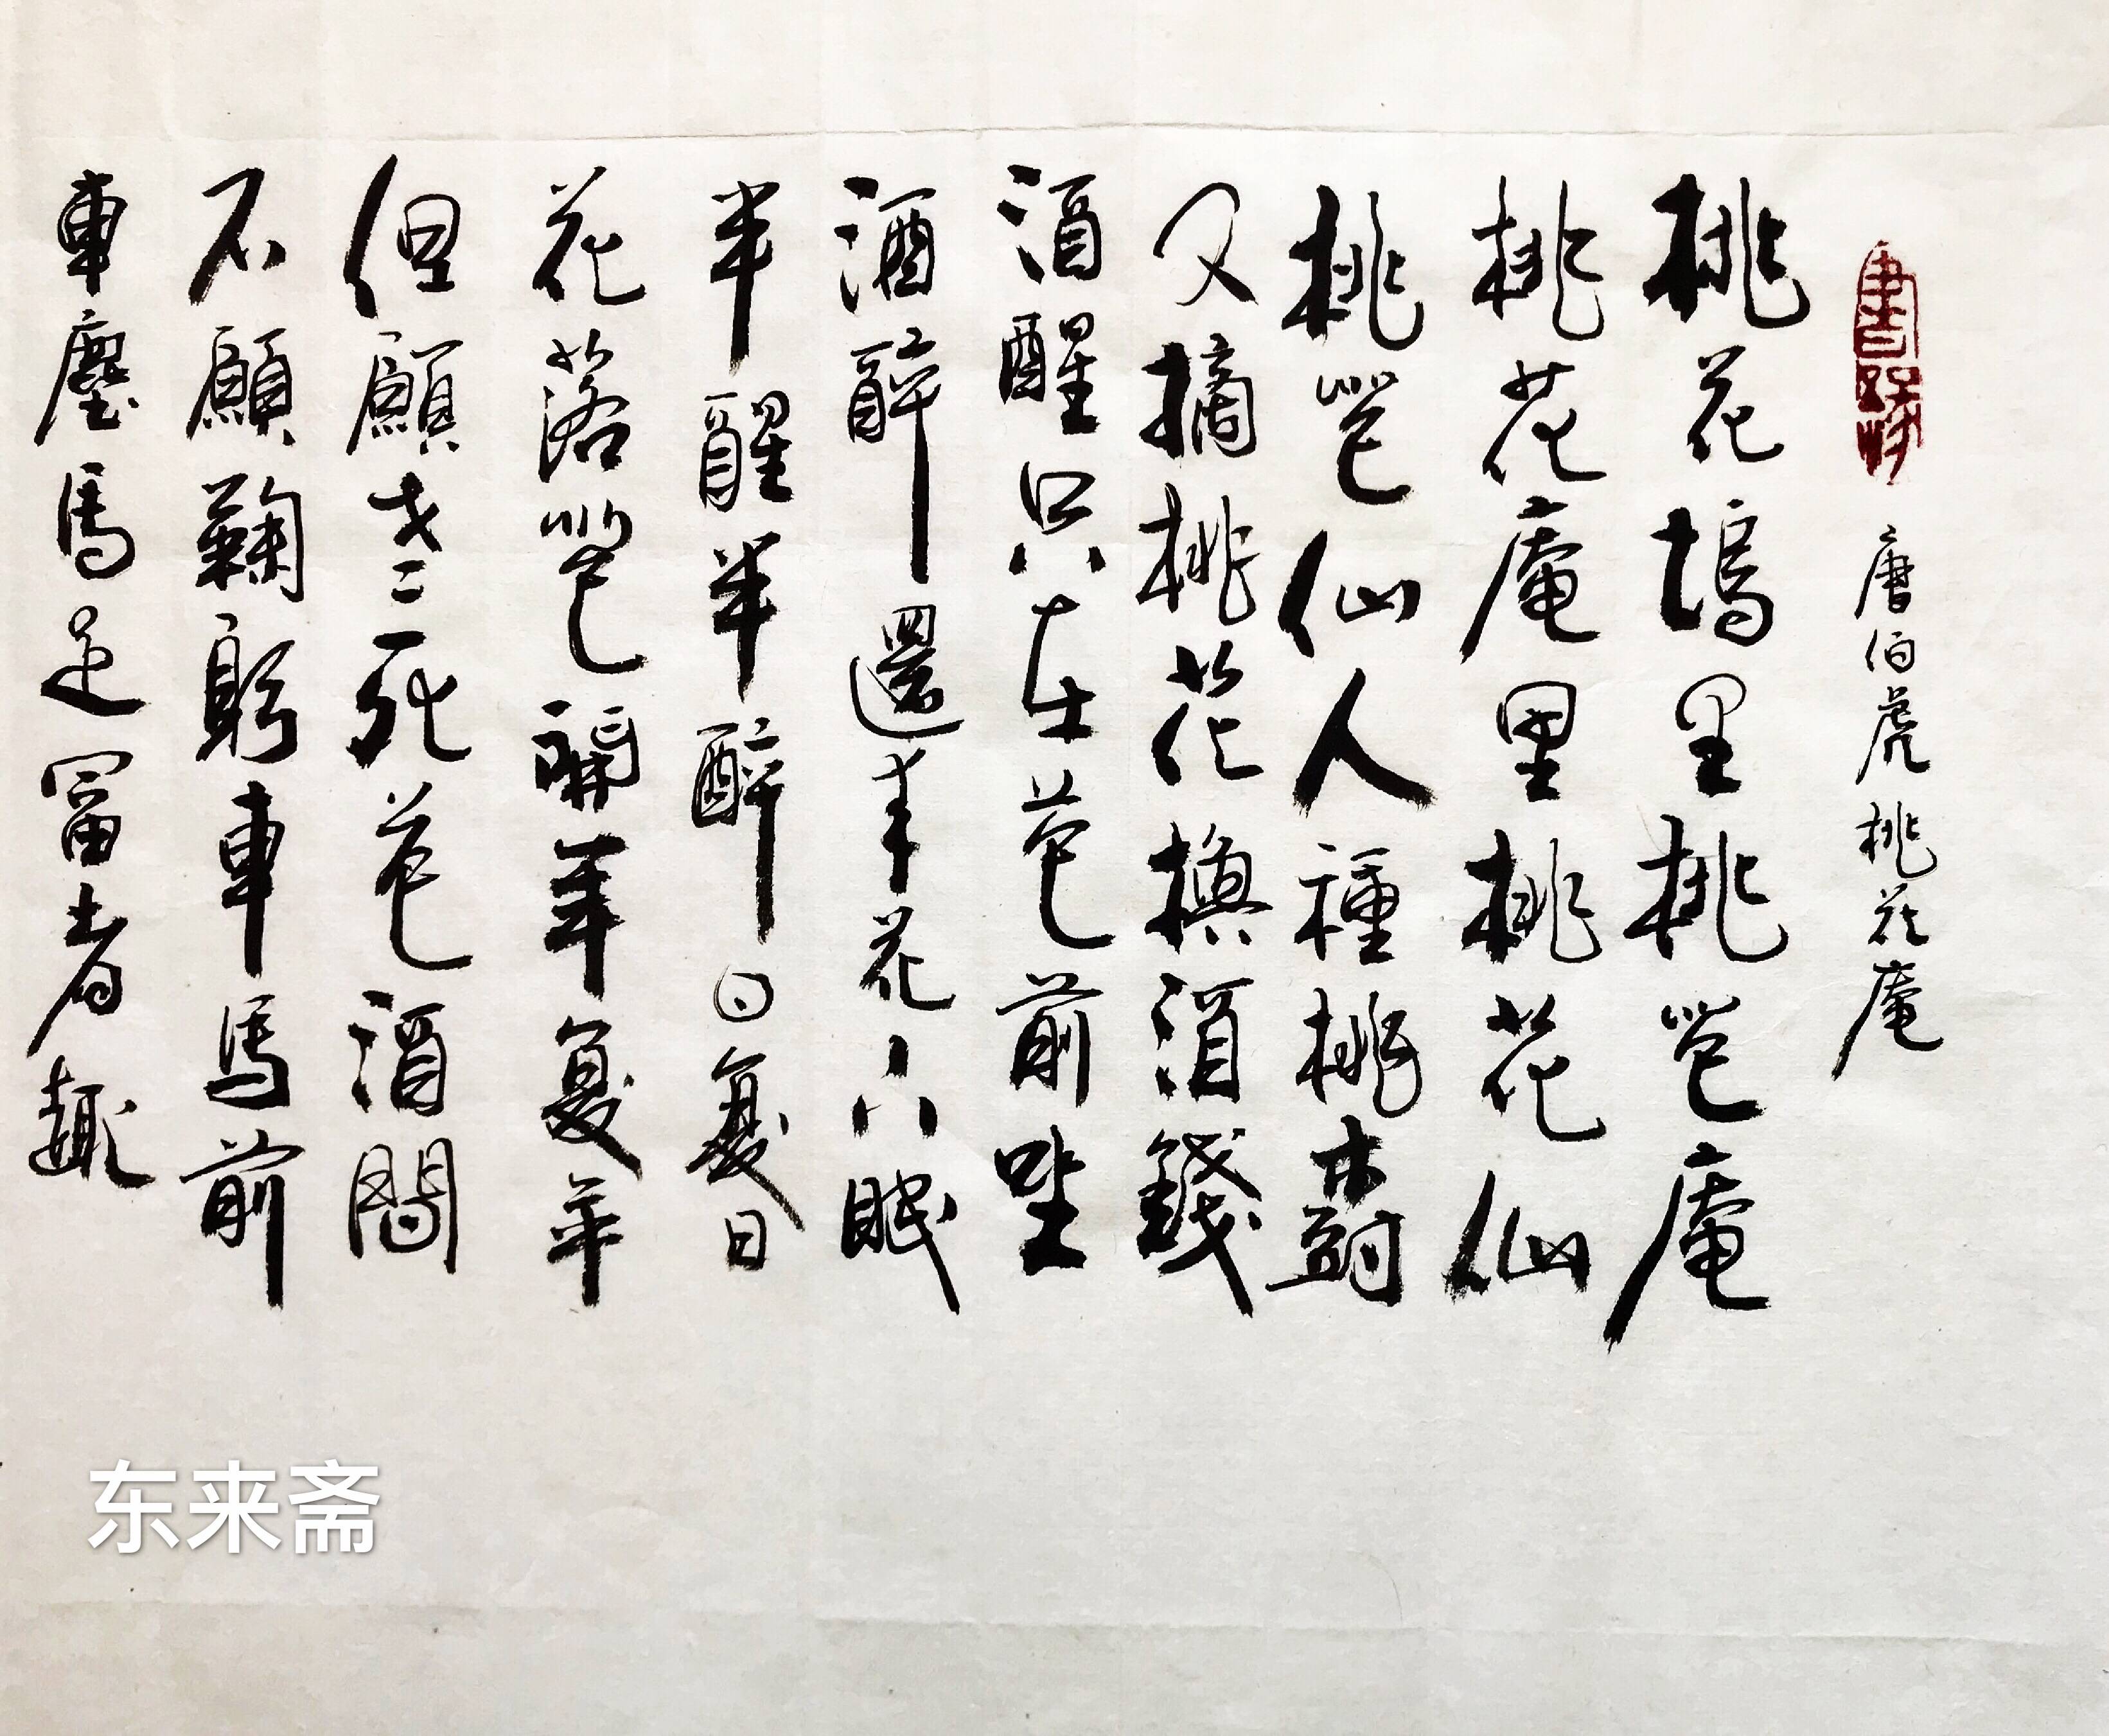 唐伯虎桃花庵
桃花塢里桃花庵
桃花庵里桃花仙
桃花仙人種桃樹
又摘桃花換酒錢
酒醒只在花前坐
酒醉還来花下眠
半醒半醉日复日
花落花開年复年
但願老死花酒間
不願鞠躬車馬前
車塵馬足富者趣
东来斋